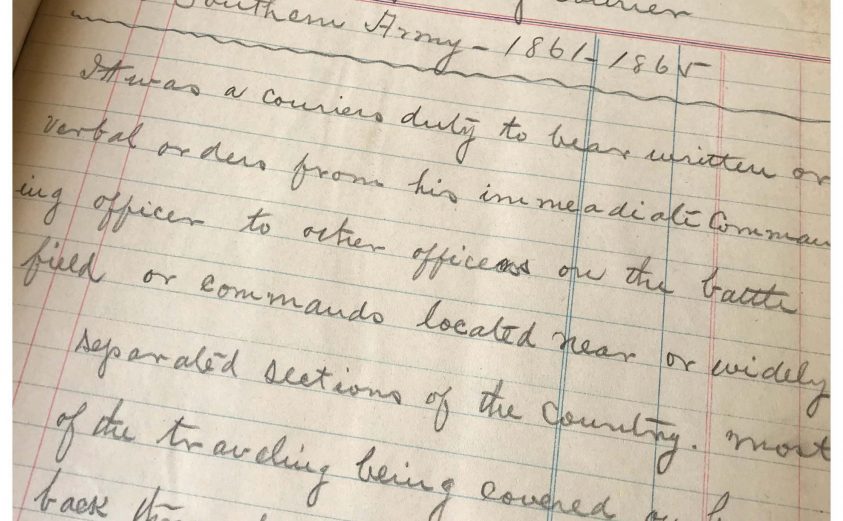 Courier
Southern Army - 1861-1865
It was a couriers duty to bear written or
verbal orders from his immeadiate Comman
ing officer to other officers on the battle
field or commands located near or widely
separated sections of the country. most
of the traveling being covered
back